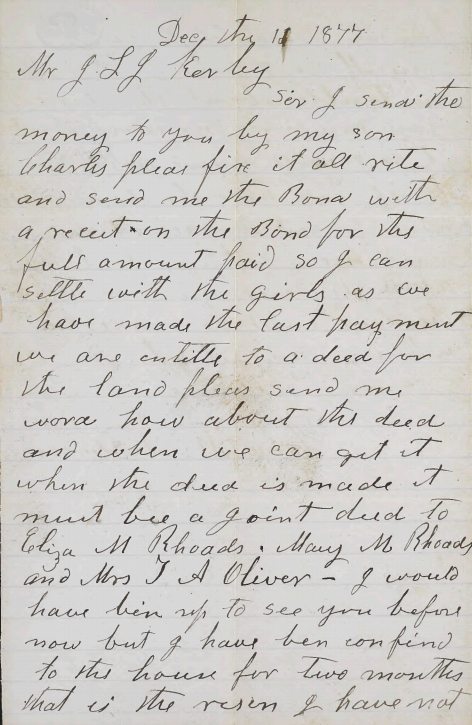 Dec the 11 1877
Mr J L J Kerley
Sir I send the
money to you by my son
Charls pleas fix it all rite
and send me the Bond with
a receit on the Bond for the
full amount paid so I can
settle with the girls as we
have made the last payment
we are entitle to a deed for
the land pleas send me
word how about the deed
and when we can get it
when the deed is made it
must bee a goint deed to
Eliza M Rhoads. Mary M Rhoads
and Mrs T A Oliver - I would
have bin up to see you before
now but I have ben confind
to the house for two months
that is the resen I have not